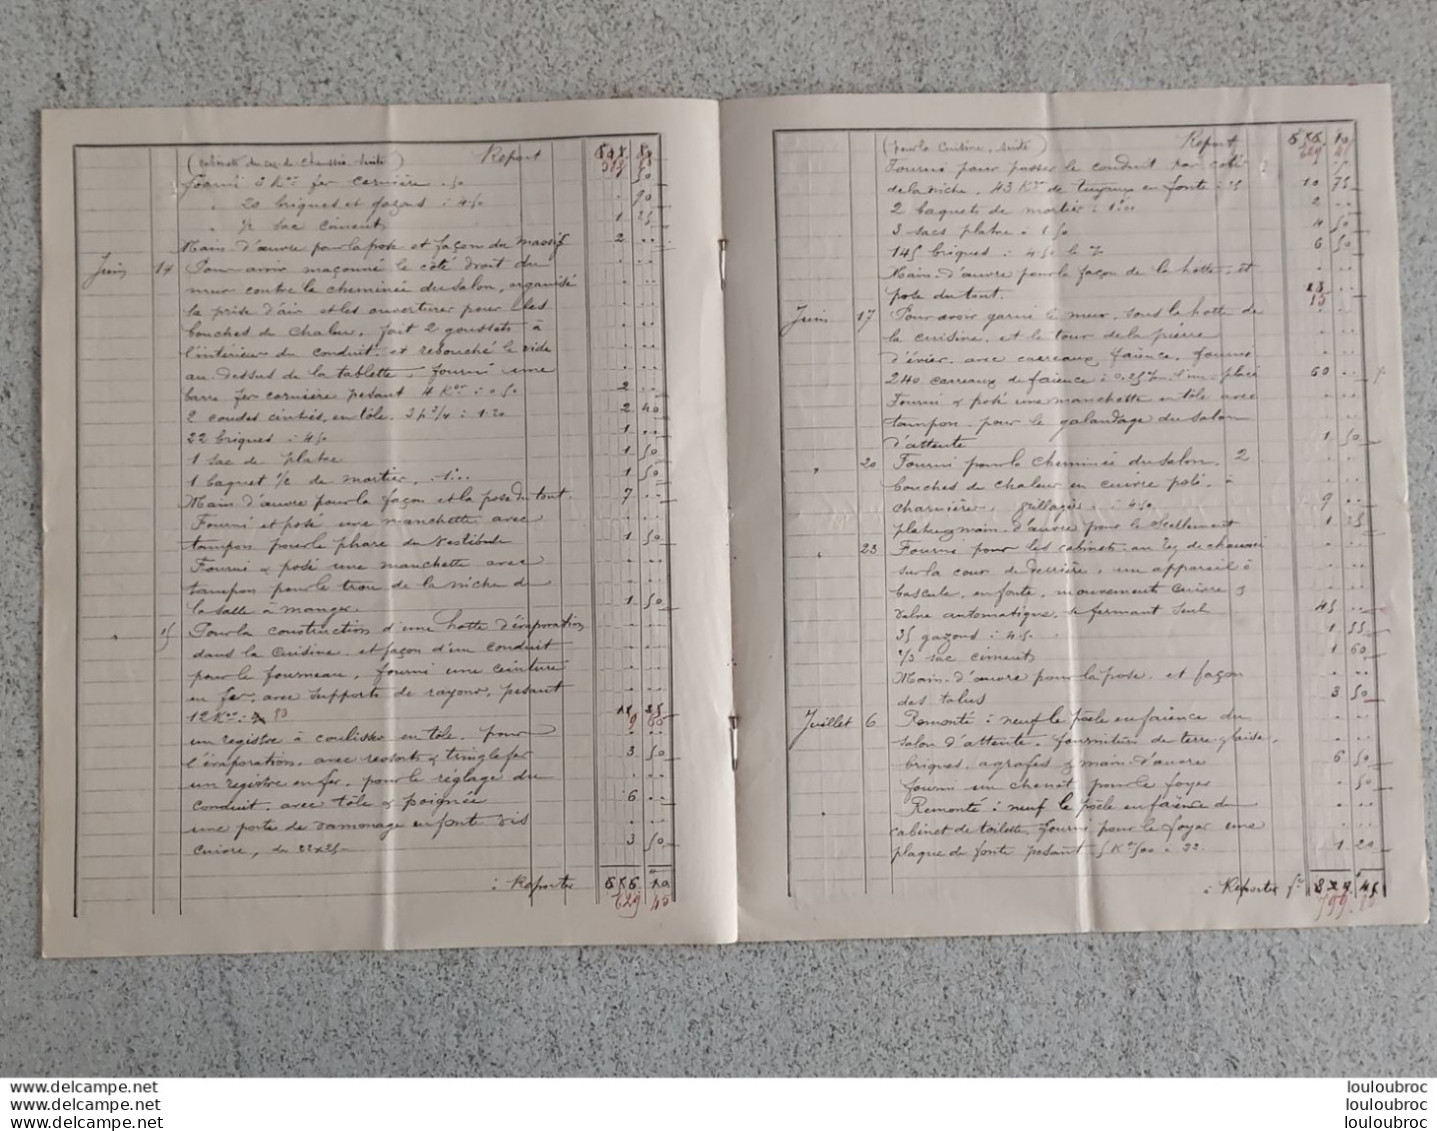 (cabinets du rez-de-chaussée, suite) Report
fourni 3 Kos fer cornière . 50 . 50
" 20 briques et gazons : 4.50 . 90
" 1/2 sac ciment 1 25
Main-d'œuvre pour la pose et façon du massif 2 ..
Juin 14 Pour avoir maçonné le côté droit du
mur contre la cheminée du salon, organisé
la prise d'air et les ouvertures pour les
bouches de chaleur, fait 2 goussets à
l'intérieur du conduit, et rebouché le vide
au-dessus de la tablette, fourni une
barre fer cornière pesant 4 Kos : 0.50 2 ..
2 coudes cintrés, en tôle . : 1.20 2 40
22 briques : 4.50 1 ..
1 sac de plâtre 1 50
1 baquet 1/2 de mortier, . 1.. 1 50
Main-d'œuvre pour la façon et la pose du tout. 7 ..
Fourni et posé une manchette avec
tampon pour le phare du vestibule 1 50
Fourni & posé une manchette avec
tampon pour le trou de la niche de
la salle à manger. 1 50
" 15 Pour la construction d'une hotte d'évaporation
dans la cuisine, et façon d'un conduit
pour le fourneau, fourni une ceinture
en fer, avec supports de rayons, pesant
12 Kos :
un registre à coulisse en tôle, pour
l'évaporation, avec ressorts & tringle fer 3 50
un registre en fer, pour le réglage du
conduit, avec tôle & poignée 6 ..
une porte de ramonage en fonte vis
cuivre, de 22x25 3 50
: Reporter 629 45
(pour la cuisine, suite) Report
Fourni pour passer le conduit par côté
de la niche, 43 Kos de tuyaux en fonte : 25 10 75
2 baquets de mortier : 1.. 2 ..
3 sacs plâtre . 1 50 4 50
145 briques : 4.50 le % 6 50
Main-d'œuvre pour la façon de la hotte, et
pose du tout.
Juin 17 Pour avoir garni le mur, sous la hotte de
la cuisine, et le tour de la pierre
d'évier, avec carreaux faïence, fourni
240 carreaux de faïence : 0,25 l'un, placé 60 ..
Fourni & posé une manchette en tôle avec
tampon, pour le galandage du salon
d'attente 1 50
" 20 Fourni pour la cheminée du salon, 2
bouches de chaleur en cuivre poli, à
charnière, grillagés : 4.50 9 ..
plâtre & main-d'œuvre pour le scellement 1 25
" 23 Fourni pour les cabinets au rez de chaussée
sur la cour de derrière, un appareil à
bascule, en fonte, mouvement cuivre &
valve automatique, se fermant seul 45 ..
35 gazons : 4.50 1 55
2/3 sac ciment 1 60
Main-d'œuvre pour la pose et façon
des talus 3 50
Juillet 6 Remonté à neuf le poêle en faïence du
salon d'attente, fourniture de terre glaise,
briques, agrafes & main-d'œuvre 6 50
fourni un chenet pour le foyer . 50
" Remonté à neuf le poêle en faïence du
cabinet de toilette, fourni pour le foyer une
plaque de fonte pesant 5 Kos 500 1 20
: Reporter fr
louloubroc
louloubroc
louloubroc
louloubroc
louloubroc
louloubroc